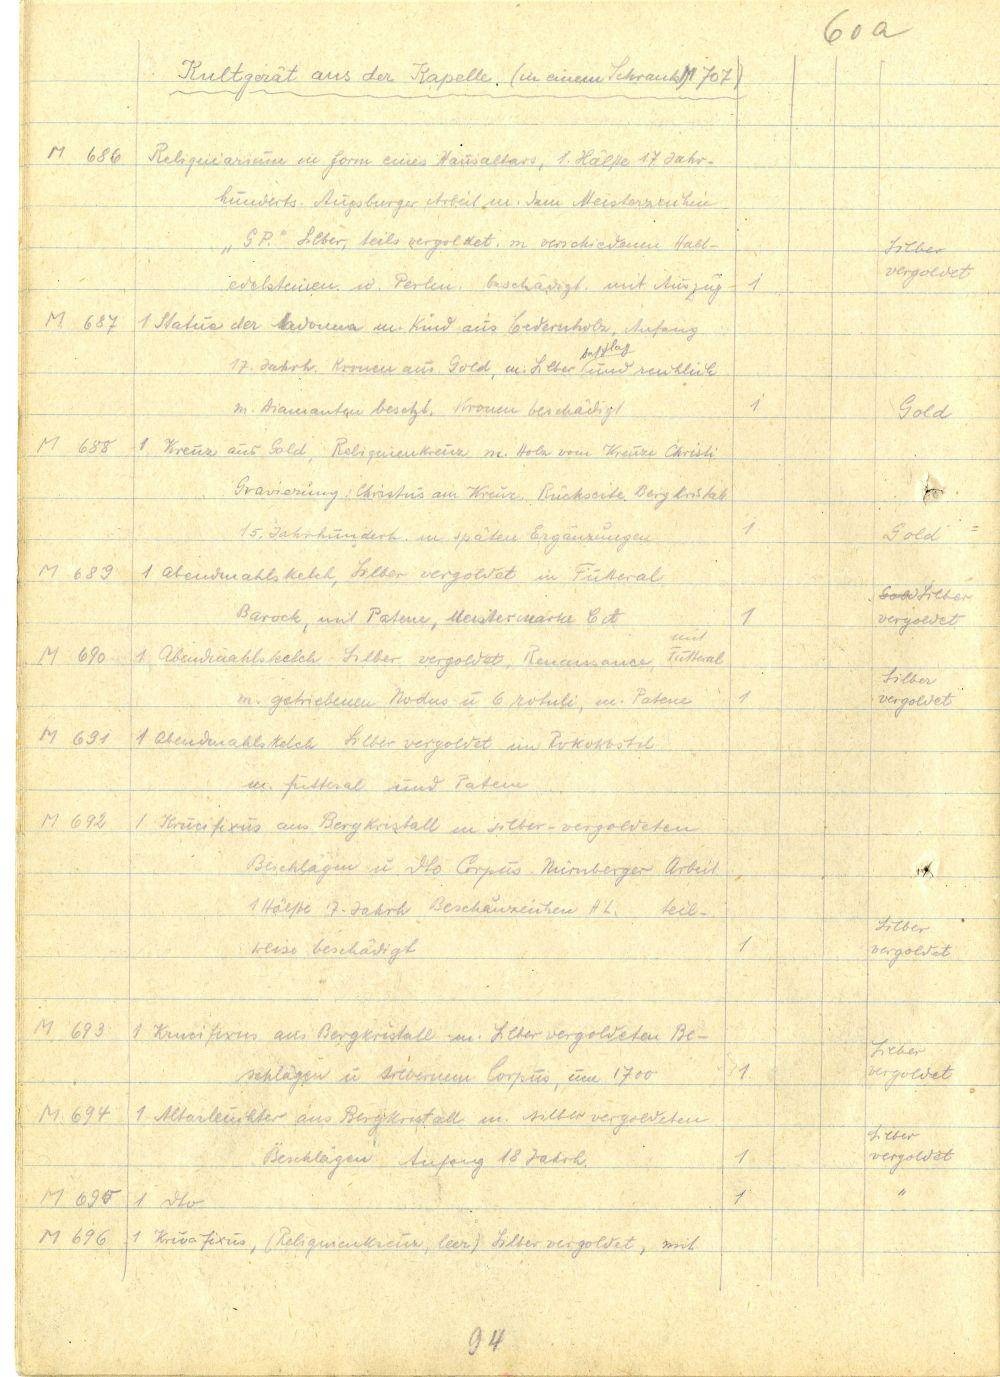 60a
Kultgerät aus der Kapelle. (in einem Schrank M 707)
M 686 Reliquiarium in form eines Hausaltars, 1. Hälfte 17 Jahr-
hunderts. Augsburger Arbeit m. dem Meisterzeichen
„G P.“ Silber, teils vergoldet. m verschiedenen Halb- Silber
edelsteinen. u. Perlen. beschädigt. mit Auszug - 1 vergoldet
M 687 1 Statue der Madonna m. Kind aus Cedernholz, Anfang
17. Jahrh. Kronen aus Gold, m. Silber und
m. Diamanten besetzt. Kronen beschädigt 1 Gold
M 688 1 Kreuz aus Gold, Reliquienkreuz m. Holz vom Kreuze Christi
Gravierung: Christus am Kreuz. Rückseite Bergkristall
15. Jahrhundert. m späten Ergänzungen 1 Gold =
M 689 1 Abendmahlskelch, Silber vergoldet in Futteral Gold Silber
Barock, mit Patene, Meistermarke C A 1 vergoldet
M 690 1 Abendmahlskelch Silber vergoldet, Renaissance, mit Futteral Silber
m. getriebenen Nodus u 6 rotuli, m. Patene 1 vergoldet
M 691 1 Abendmahlskelch Silber vergoldet im Rokokostil
m. futteral und Patene
M 692 1 Krucifixus aus Bergkristall m silber-vergoldeten
Beschlägen u. dto Corpus. Nürnberger Arbeit
1 Hälfte 17. Jahrh Beschauzeichen H L. teil- Silber
weise beschädigt 1 vergoldet
M 693 1 Krucifixus aus Bergkristall m. Silber vergoldeten Be- Silber
schlägen u silbernem Corpus, um 1700 1 vergoldet
M 694 1 Altarleuchter aus Bergkristall m. silber vergoldeten Silber
Beschlägen Anfang 18 Jahrh. 1 vergoldet
M 695 1 dto 1 "
M 696 1 Krucifixus, (Reliquienkreuz, leer) Silber vergoldet, mit
94